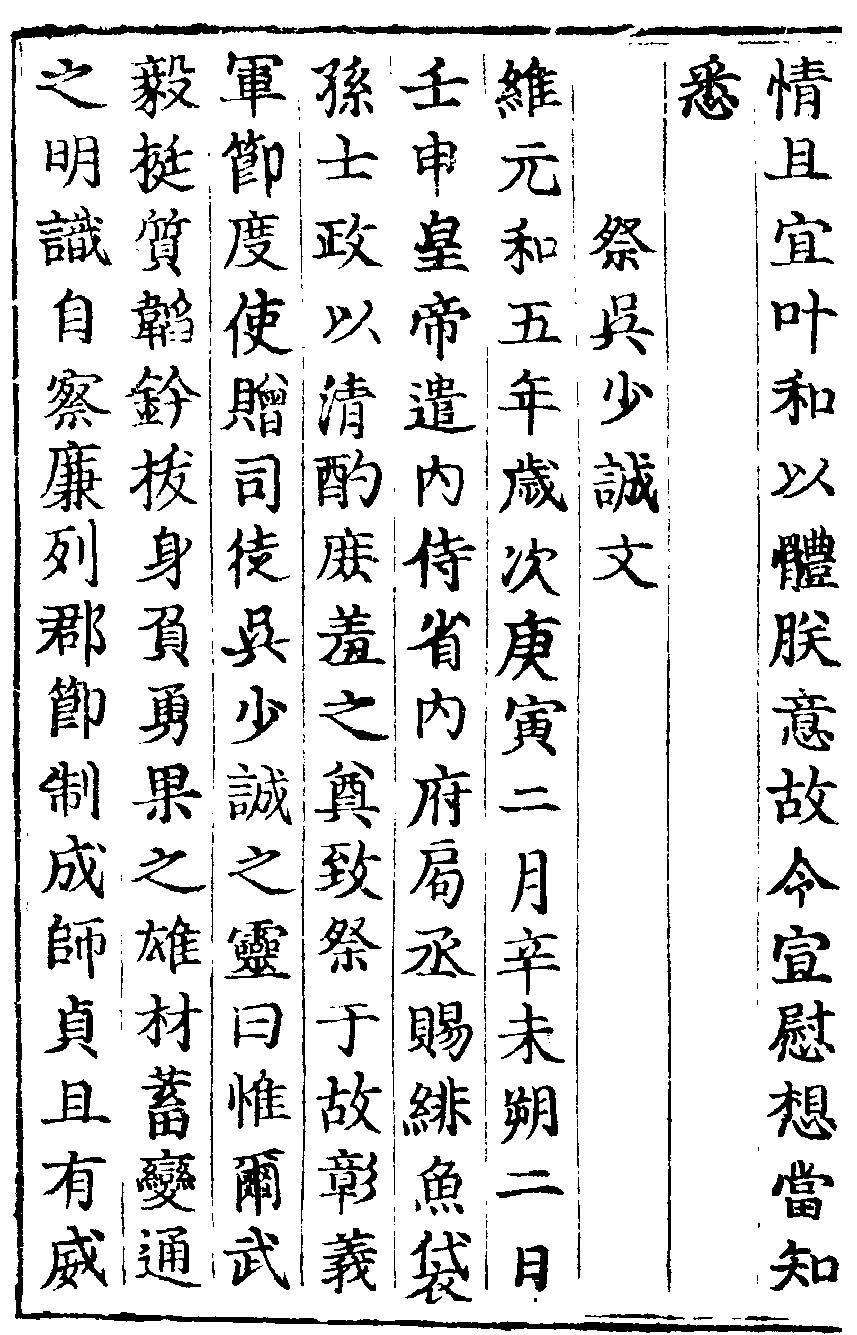 情且宜叶和以體朕意故令宣慰想當知
悉
祭吳少誠文
維元和五年歲次庚寅二月辛未朔二日
壬申皇帝遣內侍省內府局丞賜緋魚袋
孫士政以清酌庶羞之奠致祭于故彰義
軍節度使贈司徒吳少誠之靈曰惟爾武
毅挺質韜鈐拔身負勇果之雄材蓄變通
之明識自察廉列郡節制成師貞且有威